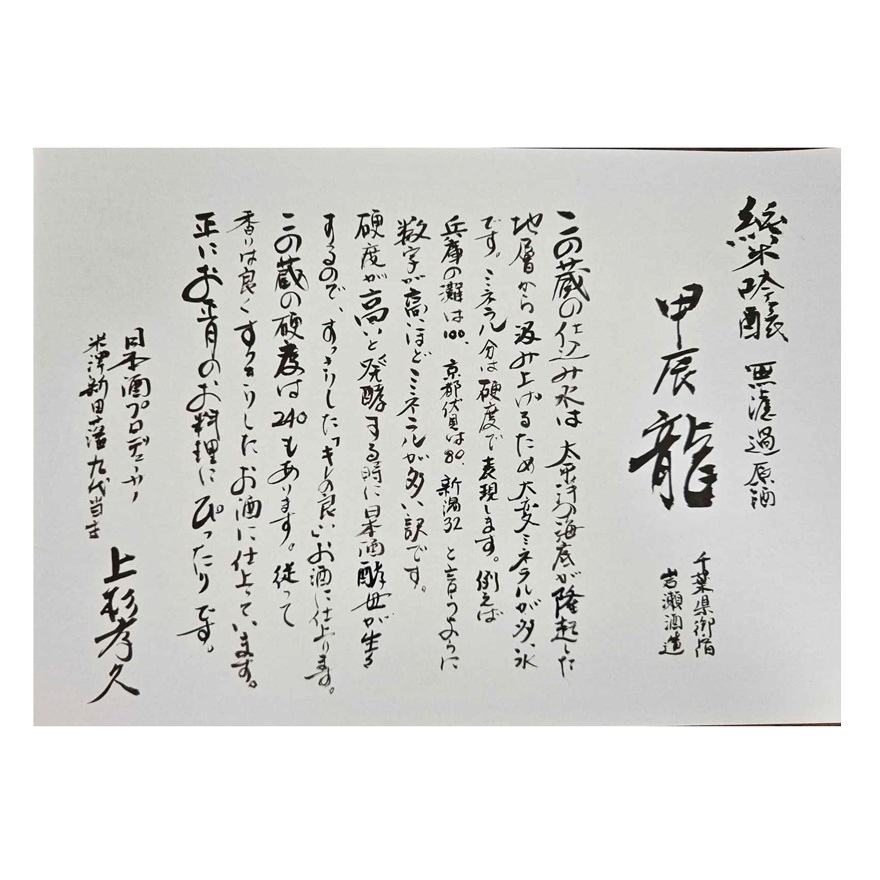 純米吟醸 無濾過原酒
甲辰 龍
千葉県御宿
岩瀬酒造
この蔵の仕込み水は太平洋の海底が隆起した
地層から汲み上げるため大変ミネラルが多い水
です。ミネラル分は硬度で表現します。例えば
兵庫の灘は100、京都伏見は80、新潟32と言うように
数字が高いほどミネラルが多い訳です。
硬度が高いと発酵する時に日本酒酵母が生き
するので、すっきりした「キレの良い」お酒に仕上ります。
この蔵の硬度は240もあります。従って
香りは良くすっきりしたお酒に仕上っています。
正にお正月のお料理にぴったりです。
日本酒プロデューサー
米澤新田藩九代当主
上杉孝久